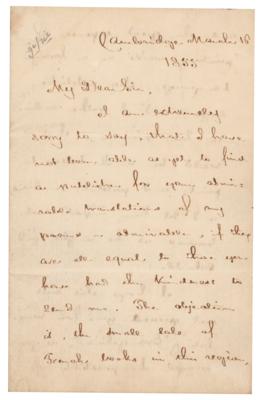 Cambridge, March 15
1855
My Dear Sir,
I am extremely
sorry to say, that I have
not been able as yet to find
a publisher for your admi-
rable translations of my
poems – admirable, if they
are all equal to those you
have had the kindness to
send me. The objection
is, the small sale of
French books in this region,